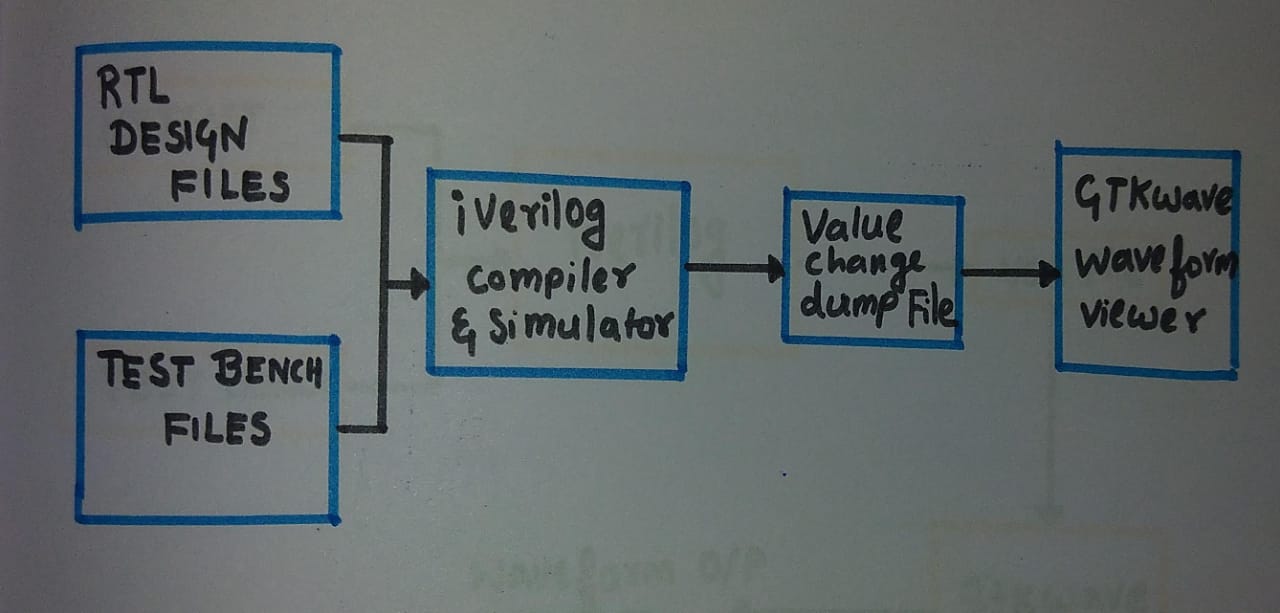 RTL
DESIGN
FILES
TEST BENCH
FILES
iVerilog
compiler
& Simulator
Value
change
dump File
GTKwave
waveform
viewer